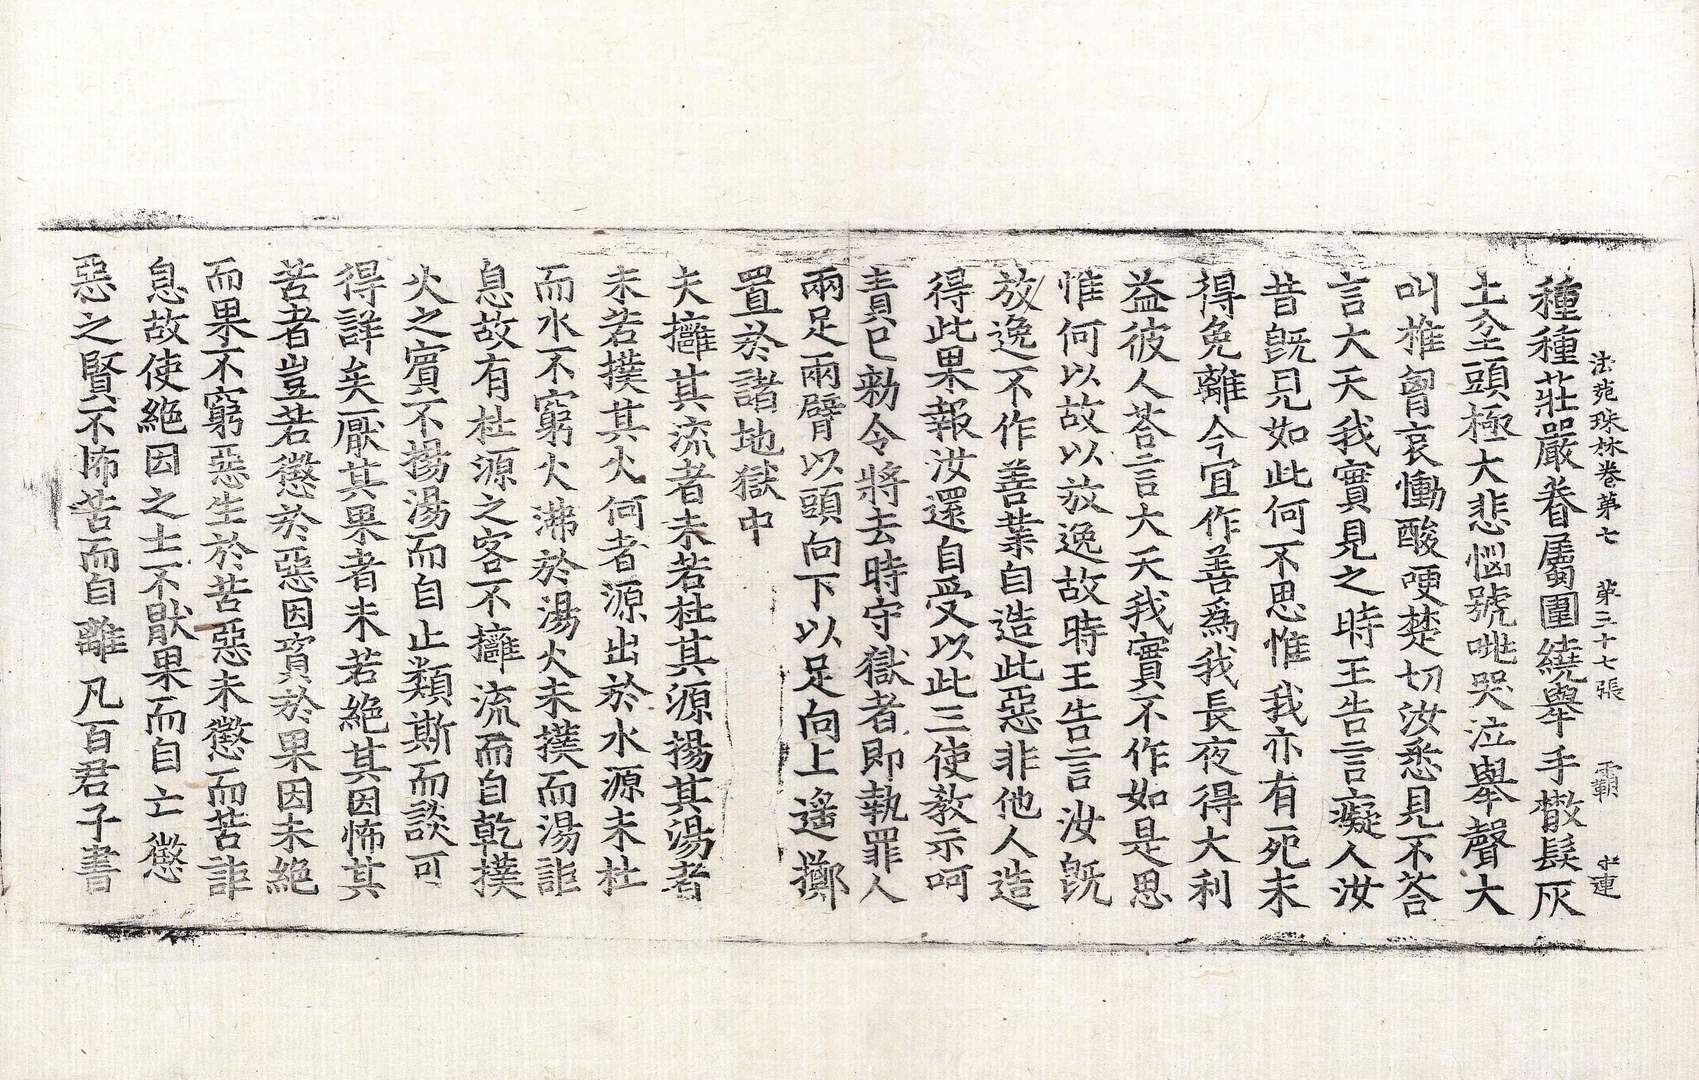 法苑珠林卷第七　第三十七張　覇
種種莊嚴眷屬圍繞舉手撒髮灰
土坌頭極大悲惱號咷哭泣舉聲大
叫椎胷哀慟酸哽楚切汝悉見不荅
言大天我實見之時王告言癡人汝
昔旣見如此何不思惟我亦有死未
得免離今宜作善爲我長夜得大利
益彼人荅言大天我實不作如是思
惟何以故以放逸故時王告言汝旣
放逸不作善業自造此惡非他人造
得此果報汝還自受以此三使教示呵
責已勑令將去時守獄者即執罪人
兩足兩臂以頭向下以足向上遥擲
置於諸地獄中
夫攡其流者未若杜其源揚其湯者
未若撲其火何者源出於水源未杜
而水不窮火沸於湯火未撲而湯詎
息故有杜源之客不攡流而自乾撲
火之賔不揚湯而自止類斯而談可
得詳矣厭其果者未若絶其因怖其
苦者豈若懲於惡因資於果因未絶
而果不窮惡生於苦惡未懲而苦詎
息故使絶因之士不猒果而自亡懲
惡之賢不怖苦而自離凡百君子書